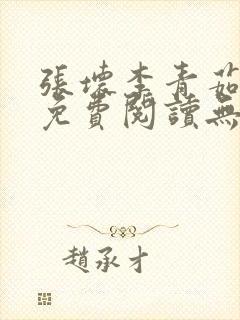 張壞李青茹
免費閱讀無
趙承才